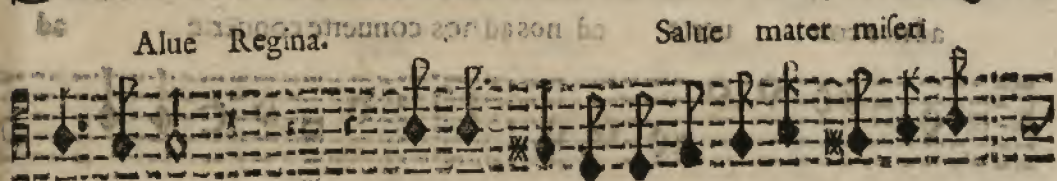 Alue Regina. Salue mater miseri